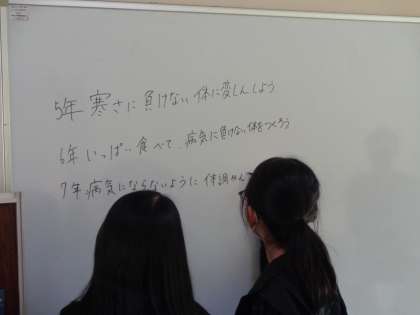 5年 寒さに負けない体に変しんしよう
6年 いっぱい食べて、病気に負けない体をつくろう
7年 病気にならないように体調かん